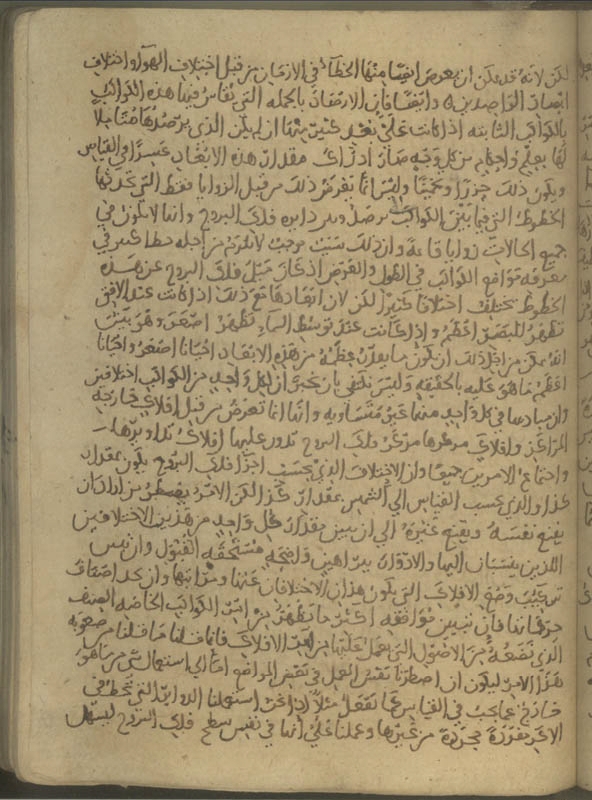 لكن لانه قد يمكن ان يعرض ايضا منها الخطأ في الازمان من قبل اختلاف الهوا واختلاف
ابصار الراصدين وايضا فان الارصاد بالجملة التي تقاس فيها هذه الكواكب
بالكواكب الثابته اذا كانت على بعد كثير منها لم يكن الذي يرصدها متاملا
لها بعلم واحكام من كل وجه صار ادراك مقدار هذه الابعاد عسرا في القياس
ويكون ذلك حزرا وتخمينا وليس انما يعرض ذلك من قبل الزوايا فقط التي تحدثها
الخطوط التي فيما بين الكواكب بوصل دايره فلك البروج وانما لا يكون في
جميع الحالات زوايا قايمة وان ذلك سبب يوجب لا يلزم من اجله خطا كثير في
معرفة مواضع الكواكب في الطول والعرض اذ كان ميل فلك البروج عن هذه
الخطوط يختلف اختلافا كثيرا لكن لان ابعادها مع ذلك اذا كانت عند الافق
تظهر للبصر اعظم واذا كانت عند توسط السماء تظهر اصغر وهو بين
انه يمكن من اجل ذلك ان يكون ما يعلم عظمه من هذه الابعاد احيانا اصغر واحيانا
اعظم مما هو عليه بالحقيقة وليس نكتفي بان نخبر ان لكل واحد من الكواكب اختلافين
وان مبادىها في كل واحد منها غير متساويه وانما انما تعرض من قبل افلاك خارجة
المراكز وافلاك مركزها مركز فلك البروج تدور عليها افلاك تداويرها
واجتماع الامرين جميعا وان الاختلاف الذي بحسب اجزا فلك البروج يكون بمقدار
كذا والذي بحسب القياس الى الشمس بمقدار كذا لكن الامر يضطر من اراد ان
يقنع نفسه ويقنع غيره الى ان يبين مقدار كل واحد من هذين الاختلافين
اللذين ينسبان اليها والادوار ببراهين واضحة مستحقه القبول وان يبين
ترتيب وضع الافلاك التي يكون هذان الاختلافان عنها ومراتبها وان نجد اصناف
حركاتها فان نبين موافقه اكثر ما يظهر من امر الكواكب الخاصه الصنف
الذي نضعه من الاصول التي نعمل عليها من هذه الافلاك فان قلنا ما قلنا من صعوبه
هذا الامر ليكون ان اضطرنا نفس العمل في بعض المواضع اما الى استعمال شي مما هو
خارج عما يجب في القياس كما نفعل مثلا اذا نحن استعملنا الدواير التي تخط في
الاكر مفردة مجردة من غيرها وعملنا على انها في نفس سطح فلك البروج ليسهل